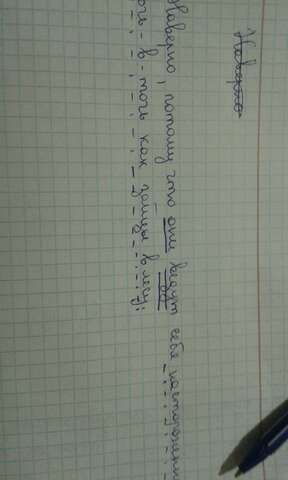 Наверно
Наверно, потому что они ведут себя настороженно
точь-в-точь как зайцы в лесу;